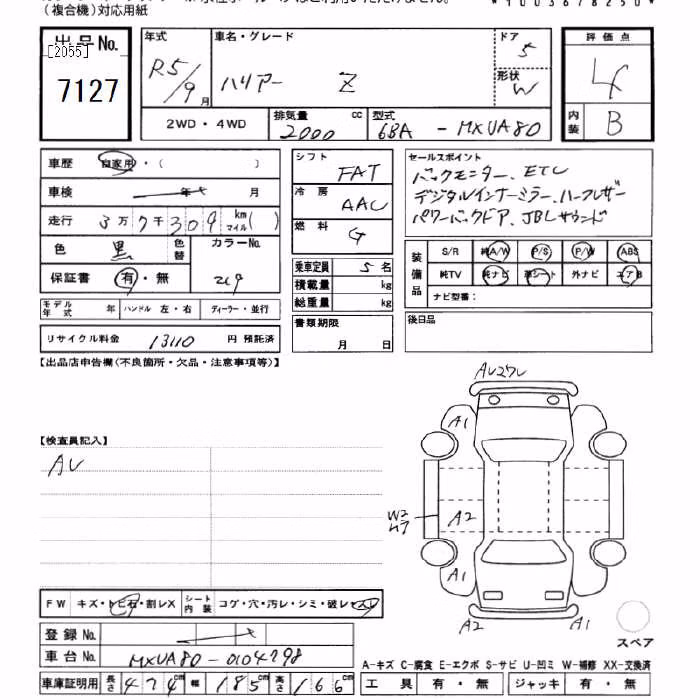 （複合機）対応用紙
*1003678250*
出品No.
[2055]
7127
年式
R5/9月
車名・グレード
ハリアー Z
ドア
5
形状
W
評価点
4
内装
B
2WD・4WD
排気量
2000 cc
型式
6BA - MXUA80
車歴 自家用・( )
車検 年 月
走行 3万7千309 km マイル( )
色 黒 色替
カラーNo.
219
保証書 有・無
モデル年式 年 ハンドル 左・右 ディーラー・並行
リサイクル料金 13110 円 預託済
シフト
FAT
冷房
AAC
燃料
G
乗車定員 5名
積載量 kg
総重量 kg
書類期限
月 日
セールスポイント
バックモニター、ETC
デジタルインナーミラー、ハーフレザー
パワーバックドア、JBLサウンド
装備品
S/R 純A/W P/S P/W ABS
純TV 純ナビ 革シート 外ナビ エアB
ナビ型番：
後日品
【出品店申告欄(不良箇所・欠品・注意事項等)】
【検査員記入】
AU
A1
A2
W2
A1
A2
A1
スペア
FW キズ・トビ石・割レX シート内装 コゲ・穴・汚レ・シミ・破レ・スレ
登録No.
車台No. MXUA80-0104798
車庫証明用 長さ 474cm 幅 185cm 高さ 166cm
A-キズ C-腐食 E-エクボ S-サビ U-凹ミ W-補修 XX-交換済
工具 有・無 ジャッキ 有・無